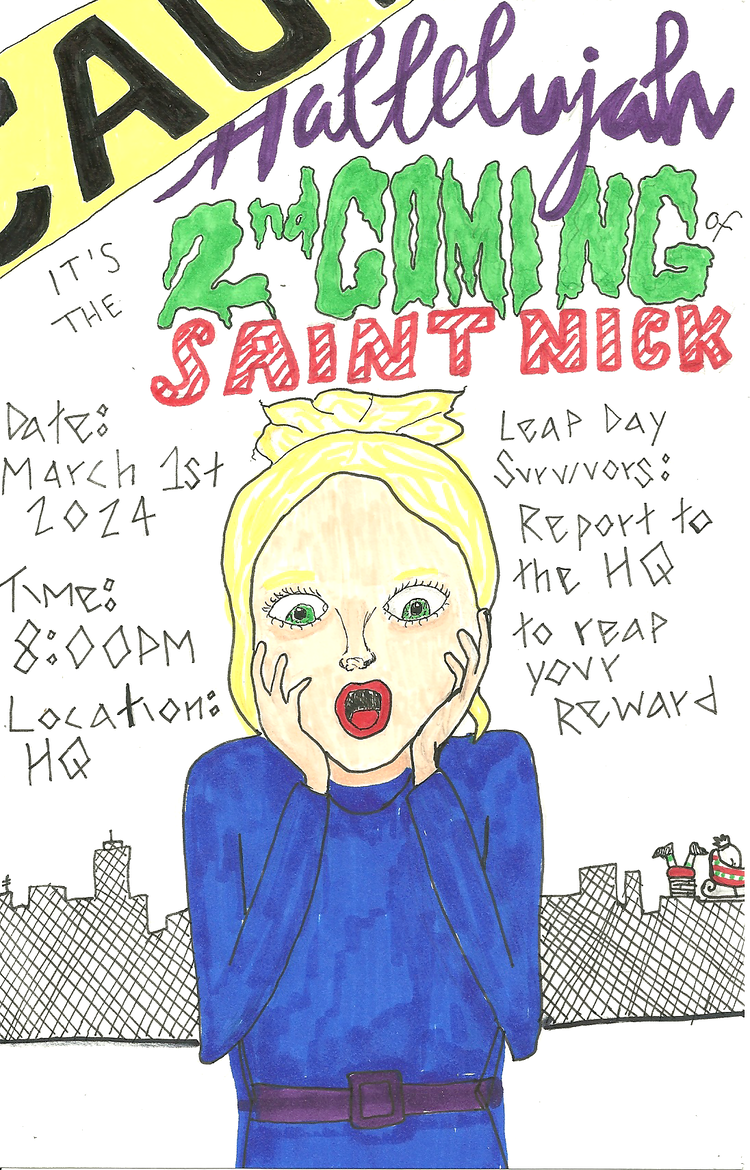 CAU
Hallelujah
IT'S
THE
2nd COMING of
SAINT NICK
Date:
March 1st
2024
Time:
8:00PM
Location:
HQ
Leap Day
Survivors:
Report to
the HQ
to reap
your
Reward